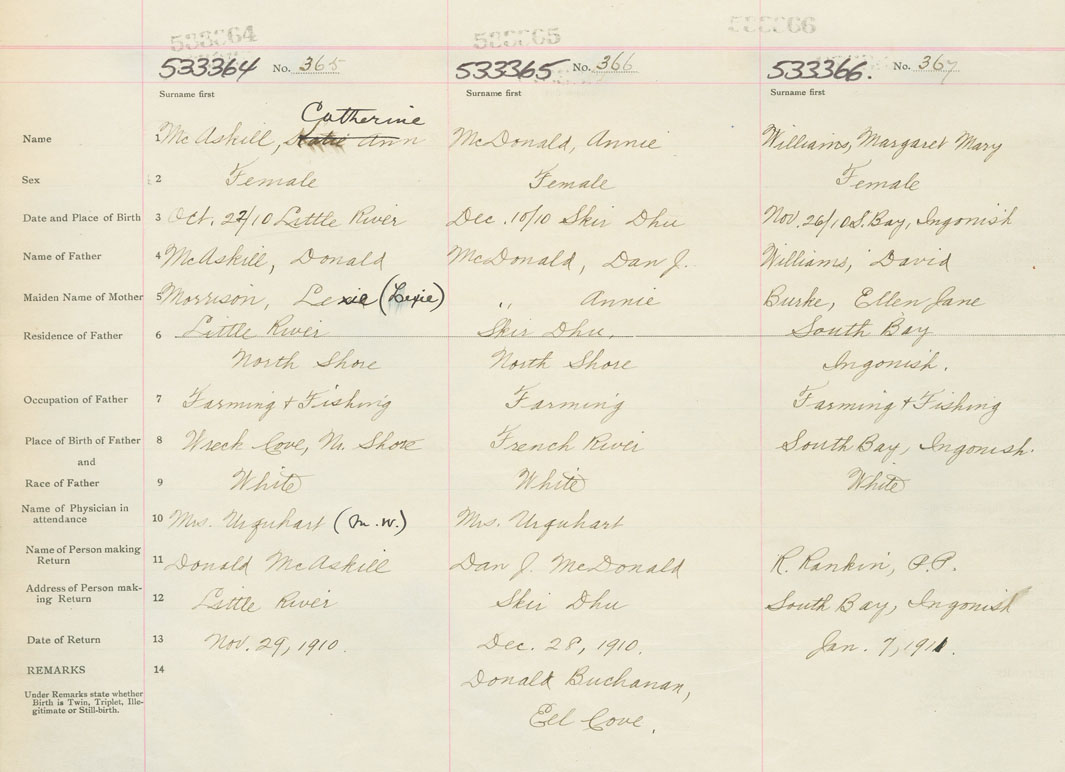 533364 533365 533366
533364 No. 365 533365 No. 366 533366. No. 367
Surname first Surname first Surname first
Catherine
Name 1 McAskill, Katie Ann McDonald, Annie Williams, Margaret Mary
Sex 2 Female Female Female
Date and Place of Birth 3 Oct. 27/10 Little River Dec. 10/10 Skir Dhu Nov. 26/10 S. Bay, Ingonish
Name of Father 4 McAskill, Donald McDonald, Dan J. Williams, David
Maiden Name of Mother 5 Morrison, Lexie (Lexie) " Annie Burke, Ellen Jane
Residence of Father 6 Little River Skir Dhu, South Bay
North Shore North Shore Ingonish.
Occupation of Father 7 Farming + Fishing Farming Farming + Fishing
Place of Birth of Father 8 Wreck Cove, N. Shore French River South Bay, Ingonish.
and
Race of Father 9 White White White
Name of Physician in
attendance 10 Mrs. Urquhart (m.w.) Mrs. Urquhart
Name of Person making
Return 11 Donald McAskill Dan J. McDonald R. Rankin, P.P.
Address of Person mak-
ing Return 12 Little River Skir Dhu South Bay, Ingonish
Date of Return 13 Nov. 29, 1910. Dec. 28, 1910. Jan. 7, 1911.
REMARKS 14 Donald Buchanan,
Under Remarks state whether
Birth is Twin, Triplet, Ille-
gitimate or Still-birth.
Eel Cove.